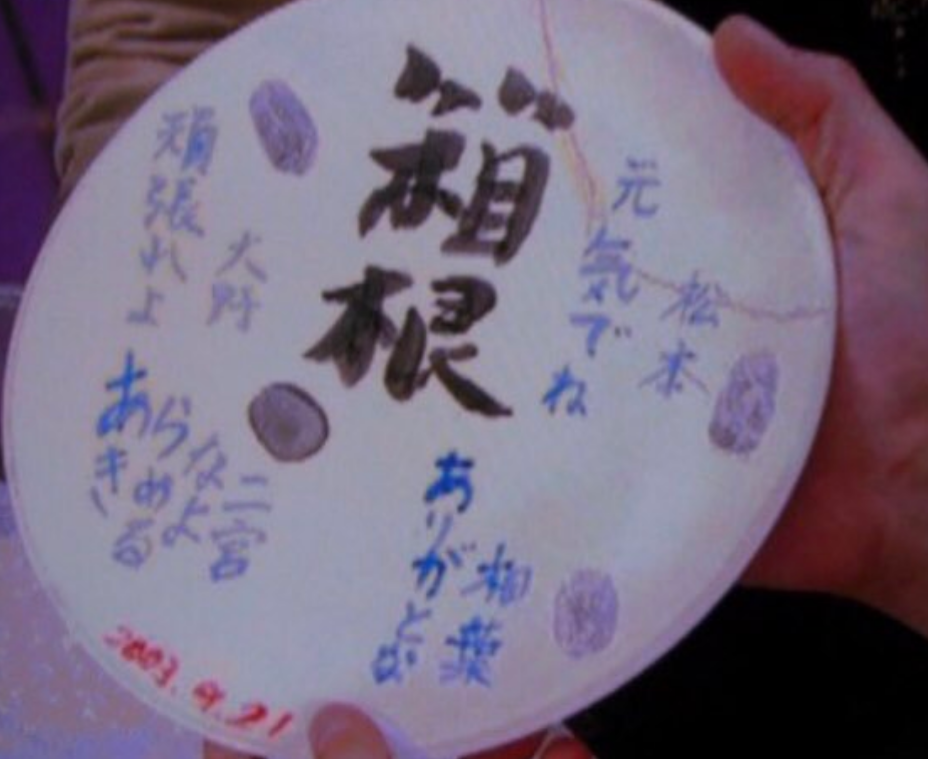 箱根
元気でね
松本
ありがとな
相葉
頑張れよ
大野
あきらめるなよ
二宮
2003.9.21